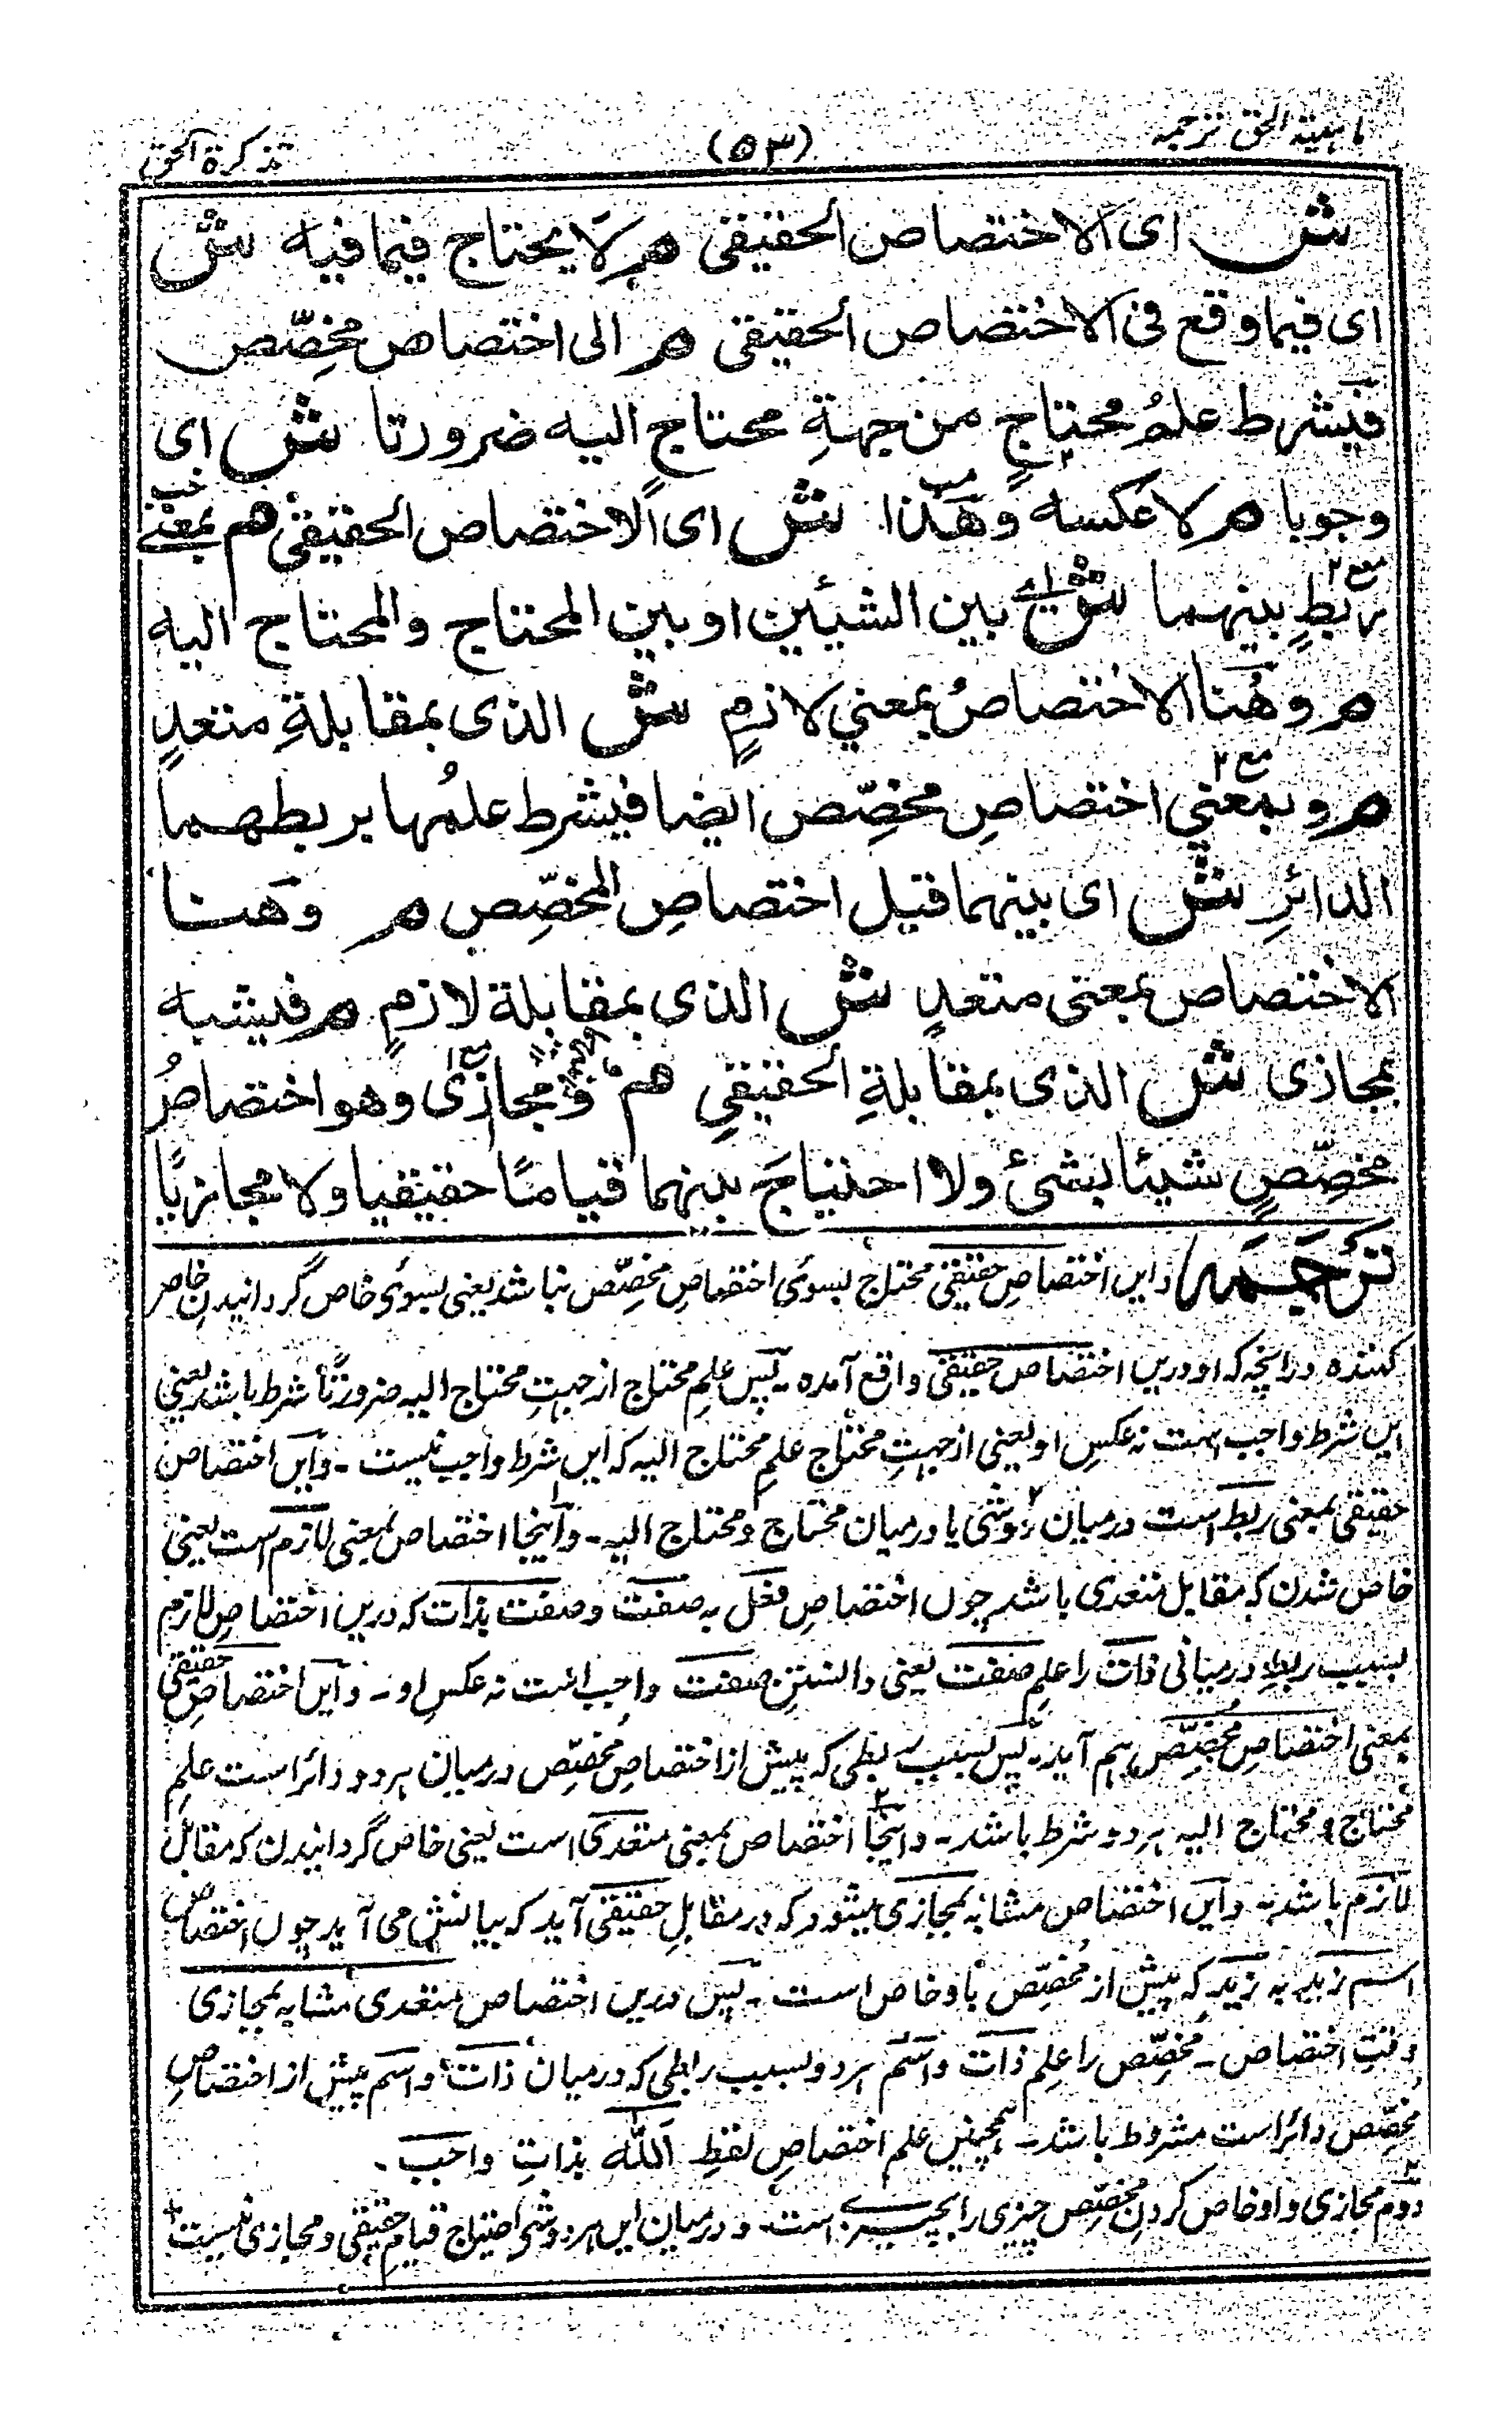 ماهیة الحق ترجمہ (۵۳) تذکرة الحق
ش ای الاختصاص الحقیقی م لا یحتاج فیما فیه ش
ای فیما وقع فی الاختصاص الحقیقی م الی اختصاص مخصِّص
فیشرط علمُ محتاجٍ من جهةِ محتاجٍ الیه ضرورتا ش ای
وجوبا م لا عکسه وهٰذا ش ای الاختصاص الحقیقی م بمعنی
ربطٍ بینهما ش ای بین الشیئین او بین المحتاج والمحتاج الیه
م وهُنا الاختصاصُ بمعنی لازمٍ ش الذی بمقابلةِ متعدٍ
م وبمعنی اختصاصِ مخصِّص ایضا فیشرط علمُها بربطهما
الدائرِ ش ای بینهما قبل اختصاصِ المخصِّص م وهنا
الاختصاص بمعنی متعدٍ ش الذی بمقابلة لازمٍ م فیشبه
بمجازی ش الذی بمقابلةِ الحقیقیِ م و مجازی وهو اختصاصُ
مخصِّصٍ شیئا بشئ ولا احتیاجَ بینهما قیامًا حقیقیا ولا مجازیًا
ترجمه واین اختصاصِ حقیقی محتاج بسوی اختصاصِ مخصِّص نباشد یعنی بسوی خاص گردانیدنِ خاص
کننده درانچه که او درین اختصاص حقیقی واقع آمده ـ پس علمِ محتاج از جهتِ محتاج الیه ضرورتاً شرط باشد یعنی
این شرط واجب است نه عکسِ او یعنی از جهتِ محتاج علمِ محتاج الیه که این شرط واجب نیست ـ واین اختصاص
حقیقی بمعنی ربط است درمیان دوشی یا درمیان محتاج و محتاج الیه ـ واینجا اختصاص بمعنی لازم است یعنی
خاص شدن که مقابل متعدی باشد چون اختصاصِ فعل به صفت و صفت بذات که درین اختصاصِ لازم
بسبب ربطِ درمیانی ذات را علمِ صفت یعنی دانستنِ صفت واجب است نه عکسِ او ـ واین اختصاصِ حقیقی
بمعنی اختصاصِ مُخصِّص هم آید ـ پس بسبب ربطی که پیش از اختصاصِ مُخصِّص درمیان هردو دائر است علمِ
محتاج و محتاج الیه هردو شرط باشد ـ واینجا اختصاص بمعنی متعدی است یعنی خاص گردانیدن که مقابل
لازم باشد ـ واین اختصاص مشابه بمجازی میشود که در مقابلِ حقیقی آید که بیانش می آید چون اختصاص
اسم زید به زید که پیش از مُخصِّص باو خاص است ـ پس درین اختصاص متعدی مشابه بمجازی
وقتِ اختصاص ـ مُخصِّص را علمِ ذات واسم هردو بسبب رابطی که درمیان ذات و اسم پیش از اختصاصِ
مُخصِّص دائر است مشروط باشد ـ همچنین علم اختصاصِ لفظِ اَللّٰه بذاتِ واجب ـ
دوم مجازی و او خاص کردنِ مُخصِّص چیزی را بچیزی است ـ و درمیان این هردوشی احتیاج قیامِ حقیقی و مجازی نیست